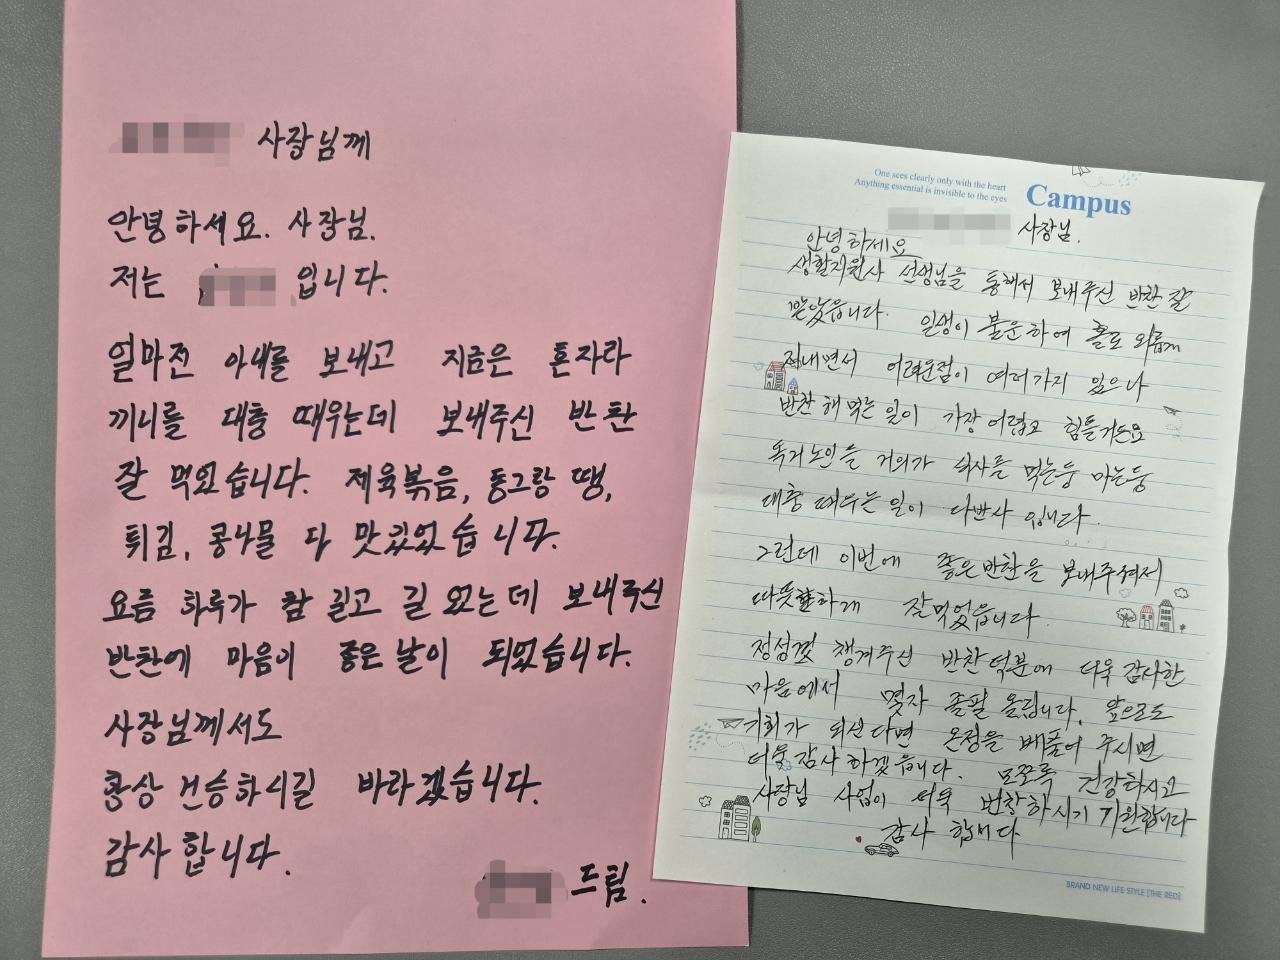 사장님께
안녕하세요. 사장님.
저는 입니다.
얼마전 아내를 보내고 지금은 혼자라
끼니를 대충 때우는데 보내주신 반찬
잘 먹었습니다. 제육볶음, 동그랑 땡,
튀김, 콩나물 다 맛있었습니다.
요즘 하루가 참 길고 길었는데 보내주신
반찬에 마음이 좋은 날이 되었습니다.
사장님께서도
항상 건승하시길 바라겠습니다.
감사합니다.
드림.
One sees clearly only with the heart
Anything essential is invisible to the eyes
Campus
사장님.
안녕하세요
생활지원사 선생님을 통해서 보내주신 반찬 잘
받았읍니다. 인생이 불운하여 홀로 외롭게
지내면서 어려운점이 여러가지 있으나
반찬 해먹는 일이 가장 어렵고 힘들거든요
독거노인들 거의가 식사를 먹는둥 마는둥
대충 때우는 일이 다반사 입니다.
그런데 이번에 좋은반찬을 보내주셔서
따뜻하게 잘먹었읍니다.
정성껏 챙겨주신 반찬덕분에 더욱 감사한
마음에서 몇자 졸필 올립니다. 앞으로도
기회가 되신다면 온정을 베풀어 주시면
더욱 감사하겠읍니다. 모쪼록 건강하시고
사장님 사업이 더욱 번창하시기 기원합니다
감사 합니다
BRAND NEW LIFE STYLE [THE RED]